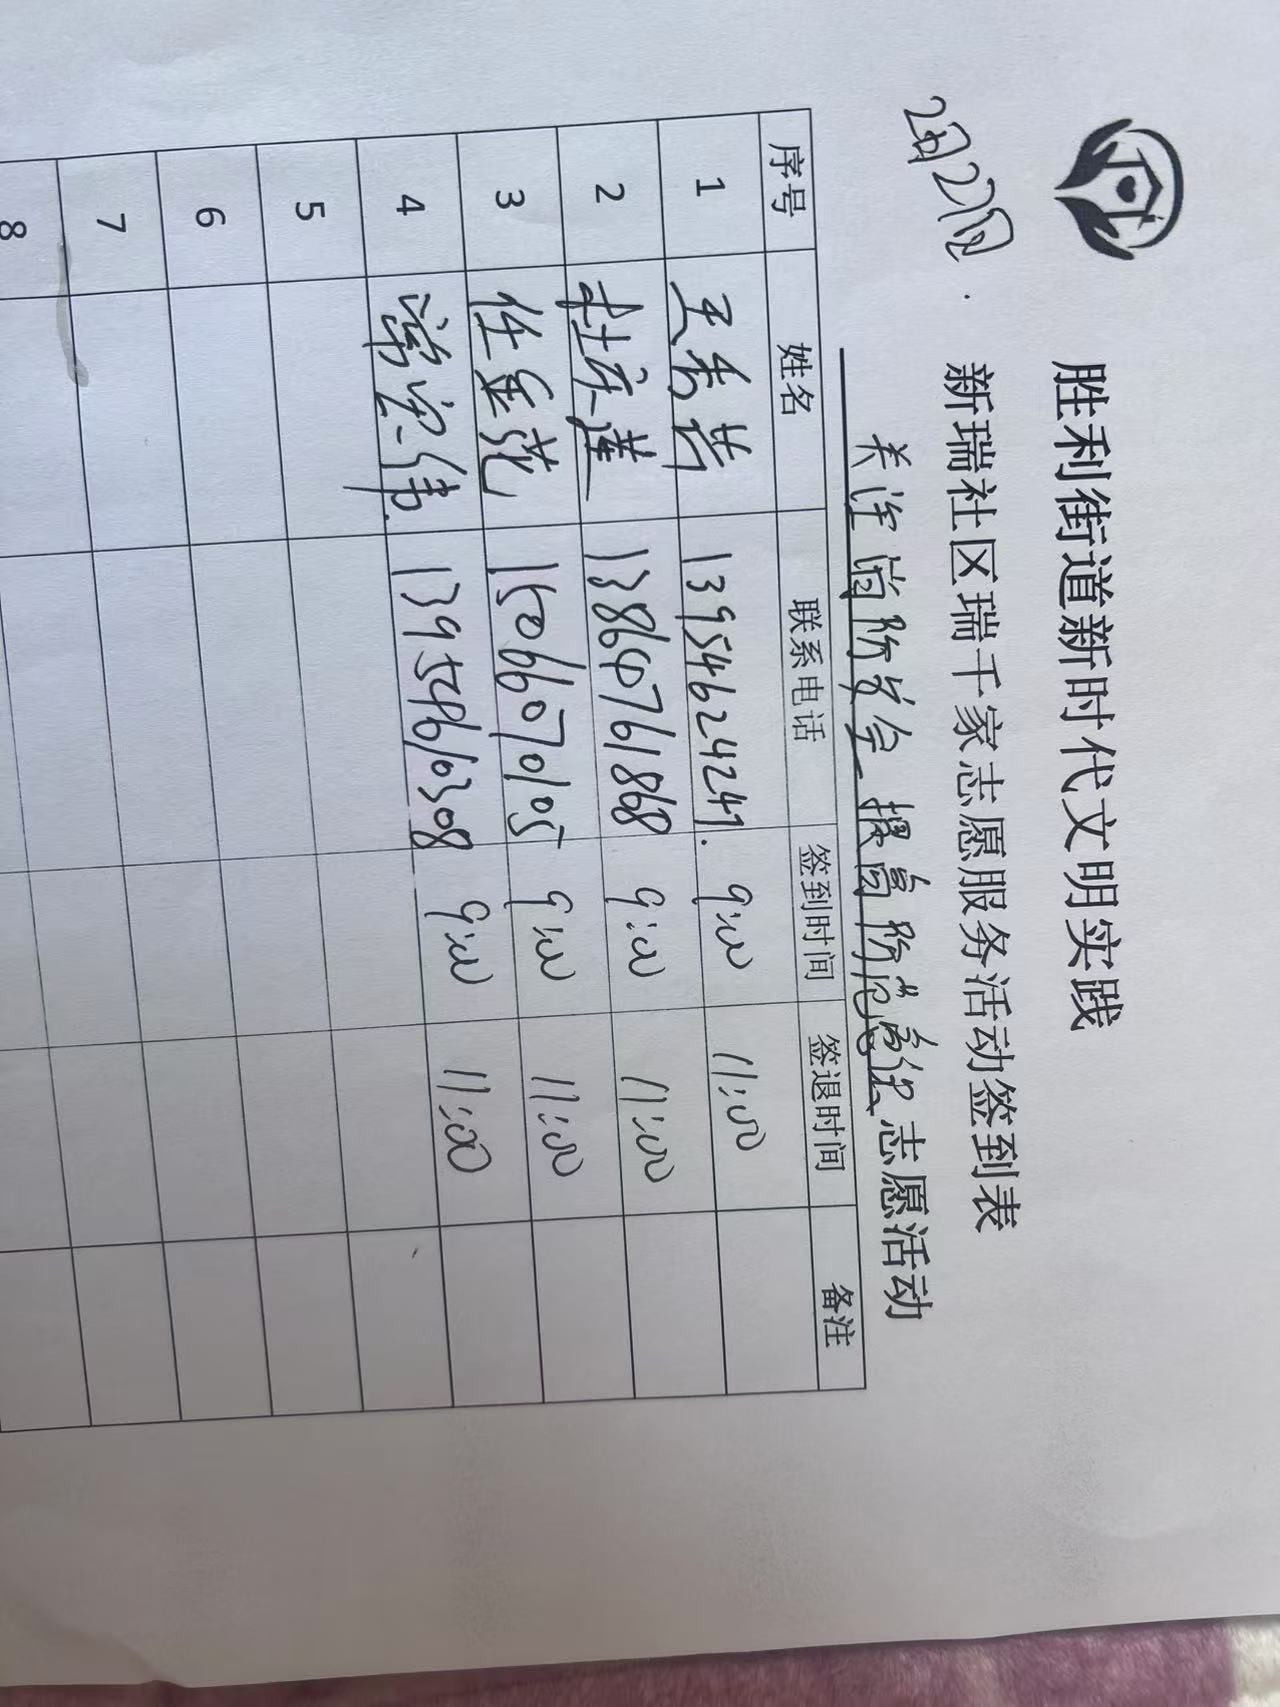 2月27日.
胜利街道新时代文明实践
新瑞社区瑞千家志愿服务活动签到表
关注消防安全 提高防范意识 志愿活动
序号 姓名 联系电话 签到时间 签退时间 备注
1 王秀芳 13954624241. 9:00 11:00
2 杜庆莲 13864761868 9:00 11:00
3 任金花 15066070105 9:00 11:00
4 常宝伟 13954616308 9:00 11:00
5
6
7
8